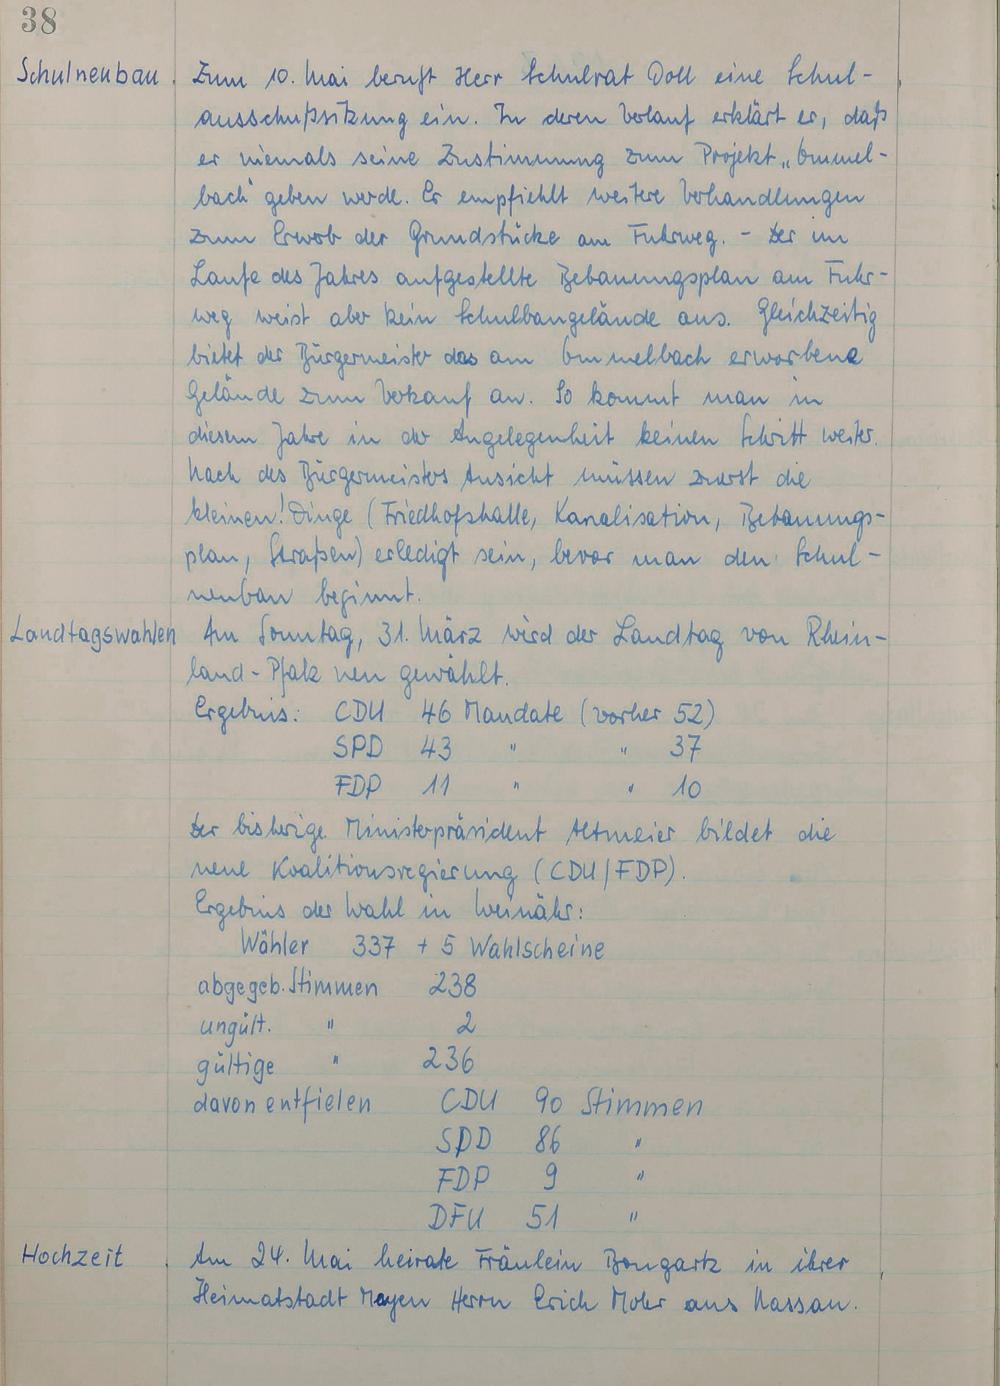 38
Schulneubau. Zum 10. Mai beruft Herr Schulrat Doll eine Schul-
ausschußsitzung ein. In deren Verlauf erklärt er, daß
er niemals seine Zustimmung zum Projekt „Emmel-
bach" geben werde. Er empfiehlt weitere Verhandlungen
zum Erwerb der Grundstücke am Fuhrweg. - Der im
Laufe des Jahres aufgestellte Bebauungsplan am Fuhr-
weg weist aber kein Schulbaugelände aus. Gleichzeitig
bietet der Bürgermeister das am Emmelbach erworbene
Gelände zum Verkauf an. So kommt man in
diesem Jahre in der Angelegenheit keinen Schritt weiter.
Nach des Bürgermeisters Ansicht müssen zuerst die
kleinen! Dinge (Friedhofshalle, Kanalisation, Bebauungs-
plan, Straßen) erledigt sein, bevor man den Schul-
neubau beginnt.
Landtagswahlen Am Sonntag, 31. März wird der Landtag von Rhein-
land-Pfalz neu gewählt.
Ergebnis: CDU 46 Mandate (vorher 52)
SPD 43 " " 37
FDP 11 " " 10
Der bisherige Ministerpräsident Altmeier bildet die
neue Koalitionsregierung (CDU/FDP).
Ergebnis der Wahl in Weinähr:
Wähler 337 + 5 Wahlscheine
abgegeb. Stimmen 238
ungült. " 2
gültige " 236
davon entfielen CDU 90 Stimmen
SPD 86 "
FDP 9 "
DFU 51 "
Hochzeit. Am 24. Mai heirate Fräulein Bongartz in ihrer
Heimatstadt Mayen Herrn Erich Mohr aus Nassau.